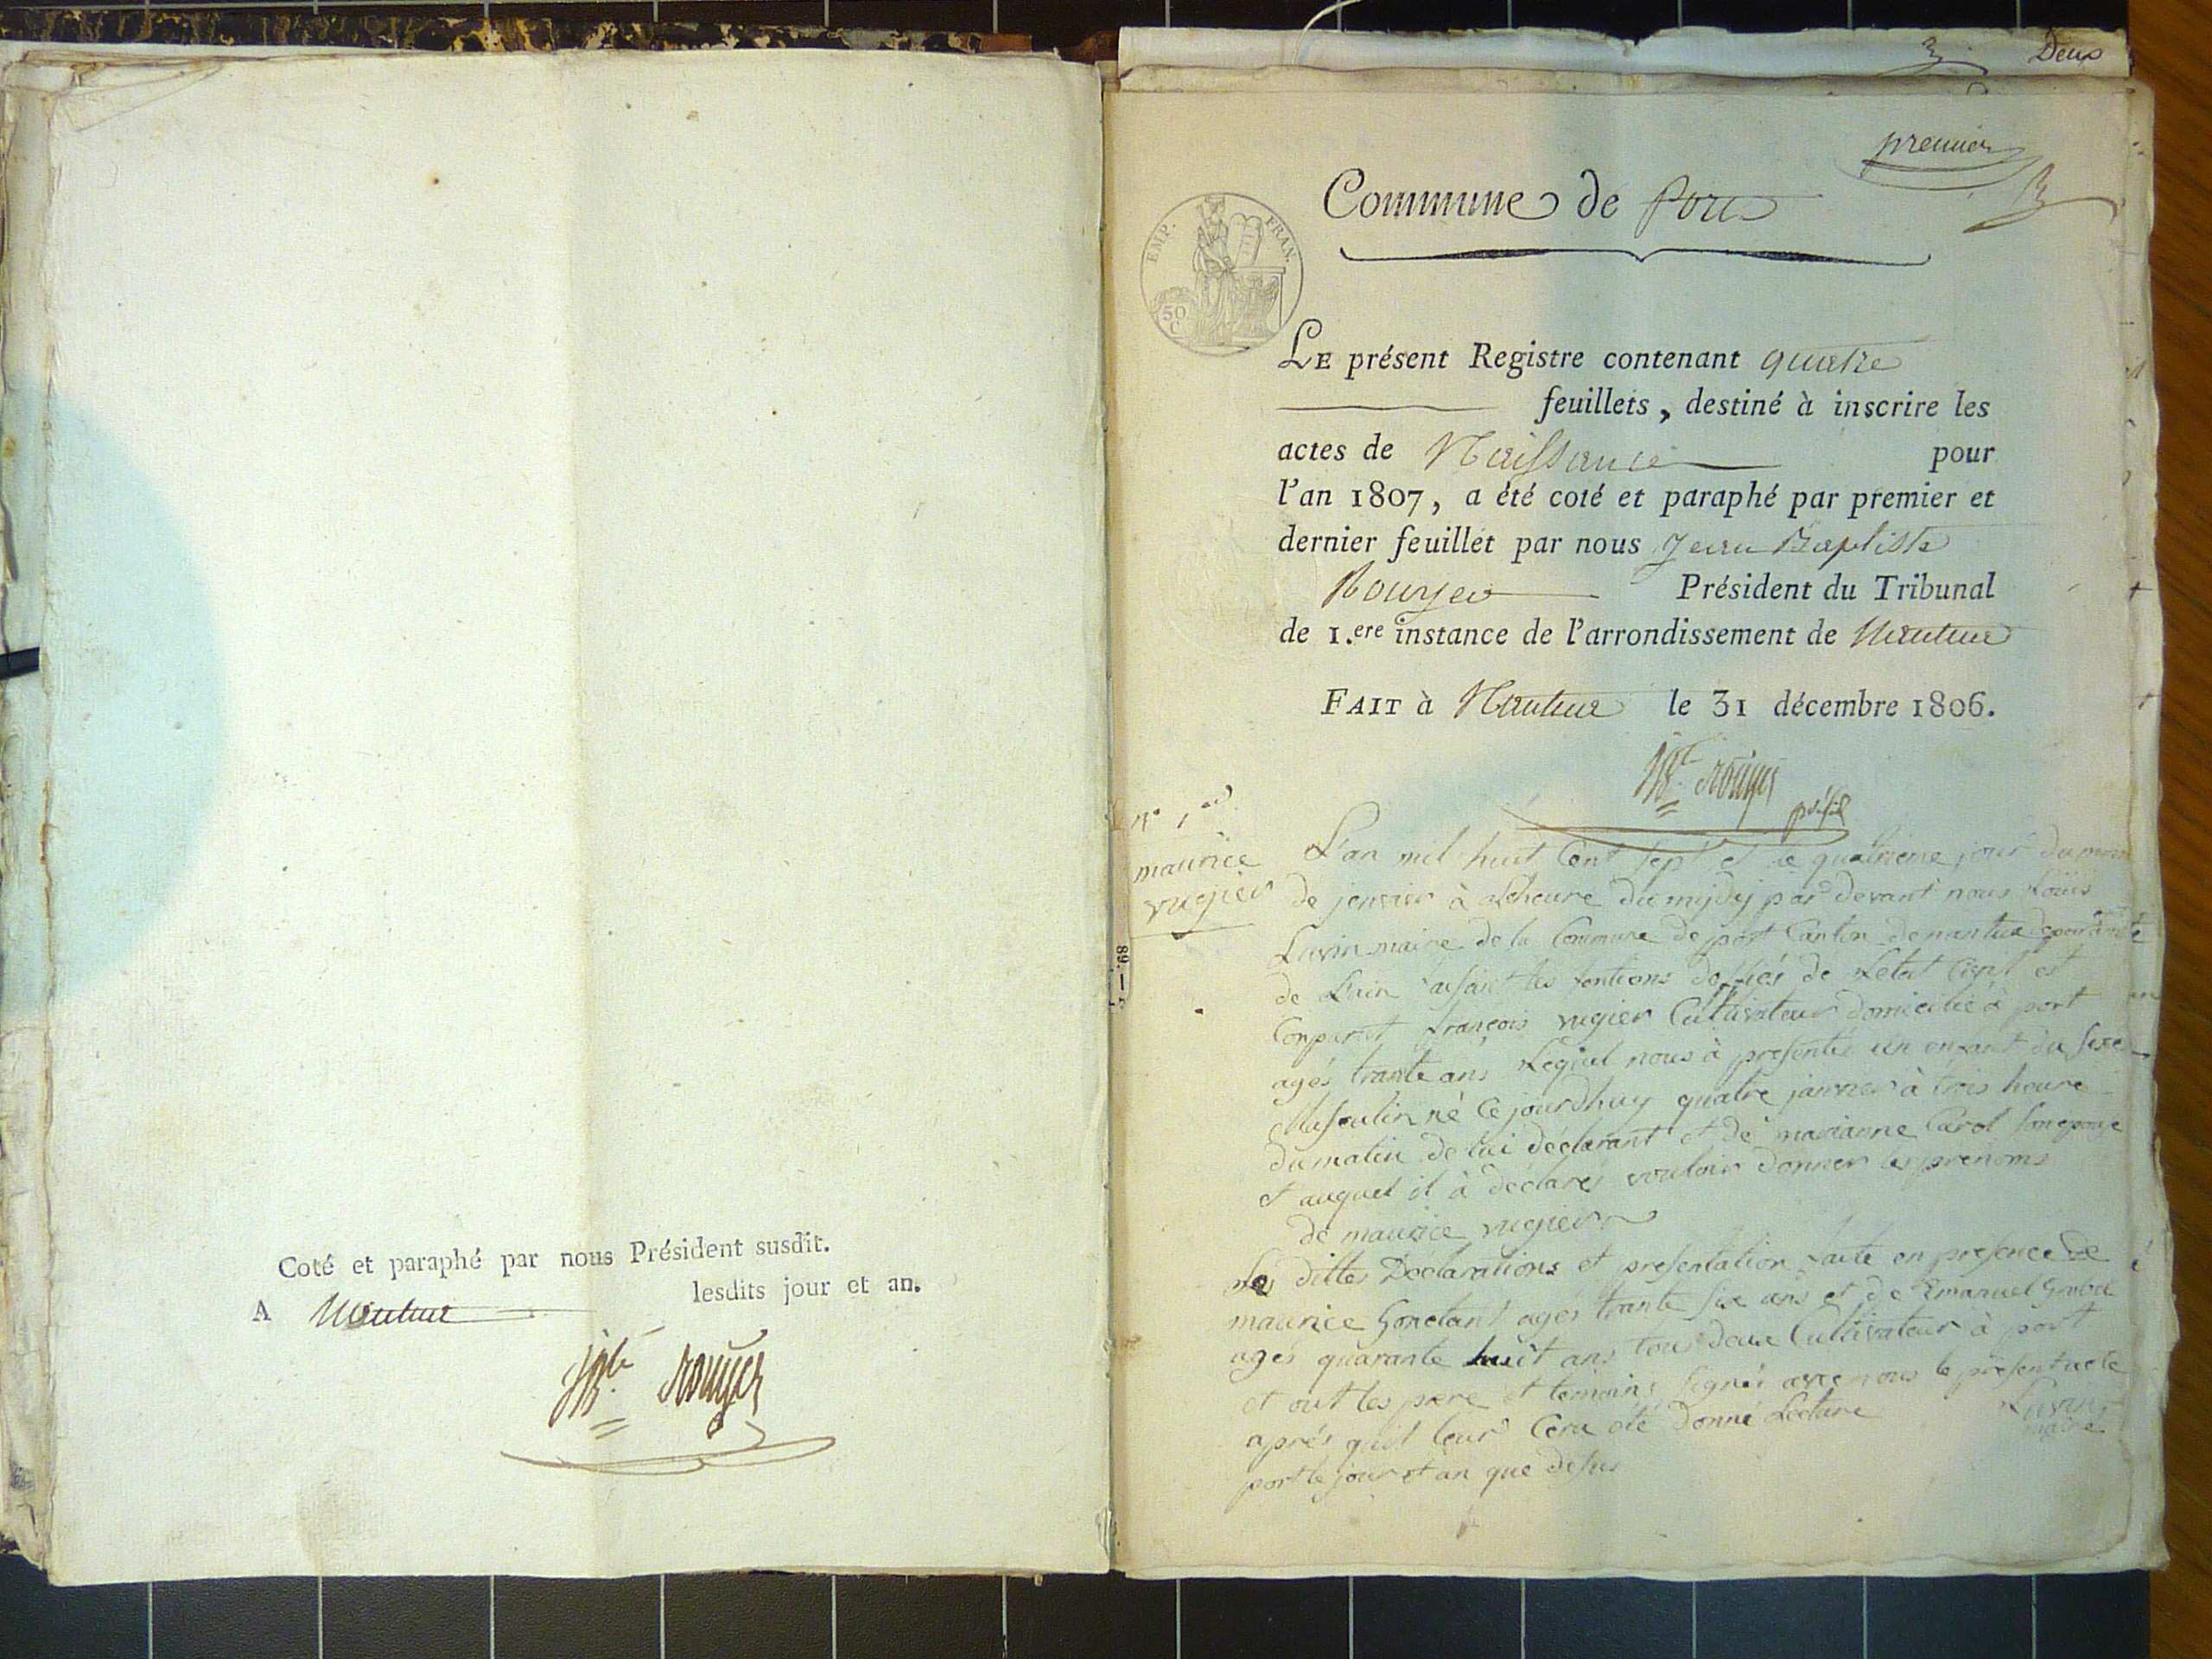 Coté et paraphé par nous Président susdit.
lesdits jour et an.
A Nantua
JBte Rouyer
Deux
premier
Commune de Port
EMP. FRAN.
50
C
LE présent Registre contenant quatre
feuillets, destiné à inscrire les
actes de Naissance pour
l'an 1807, a été coté et paraphé par premier et
dernier feuillet par nous Jean Baptiste
Rouyer Président du Tribunal
de 1.ere instance de l'arrondissement de Nantua
FAIT à Nantua le 31 décembre 1806.
JBte Rouyer
présid
n° 1er
maurice
rugier
L'an mil huit Cent sept et le quatrieme jour du mois
de jenvier à Lheure du mijdij par devant nous Loüis
Luvrin maire de la Commune de port Canton de nantua
de Lain faisant les fontions de Letat Civil est
Comparut françois rugier Cultivateur domicilié à port
agés trante ans Lequel nous à presentés un enfant du sexe
Masculin né Ce jourdhuy quatre janvier à trois heure
du matin de lui déclarant et de marianne Carol son epouse
et auquel il à déclarés vouloir donner les prenoms
de maurice rugier
Les dittes Déclarations et presentation faite en presence de
maurice Gonctant agés trante six ans et de Emanuel
agés quarante huit ans tous deux Cultivateur à port
et ont les pere et temoins signés avec nous le present acte
aprés quil leur Cera été donné Lecture
port le jour et an que desus
Luvrin
maire
89.—1.